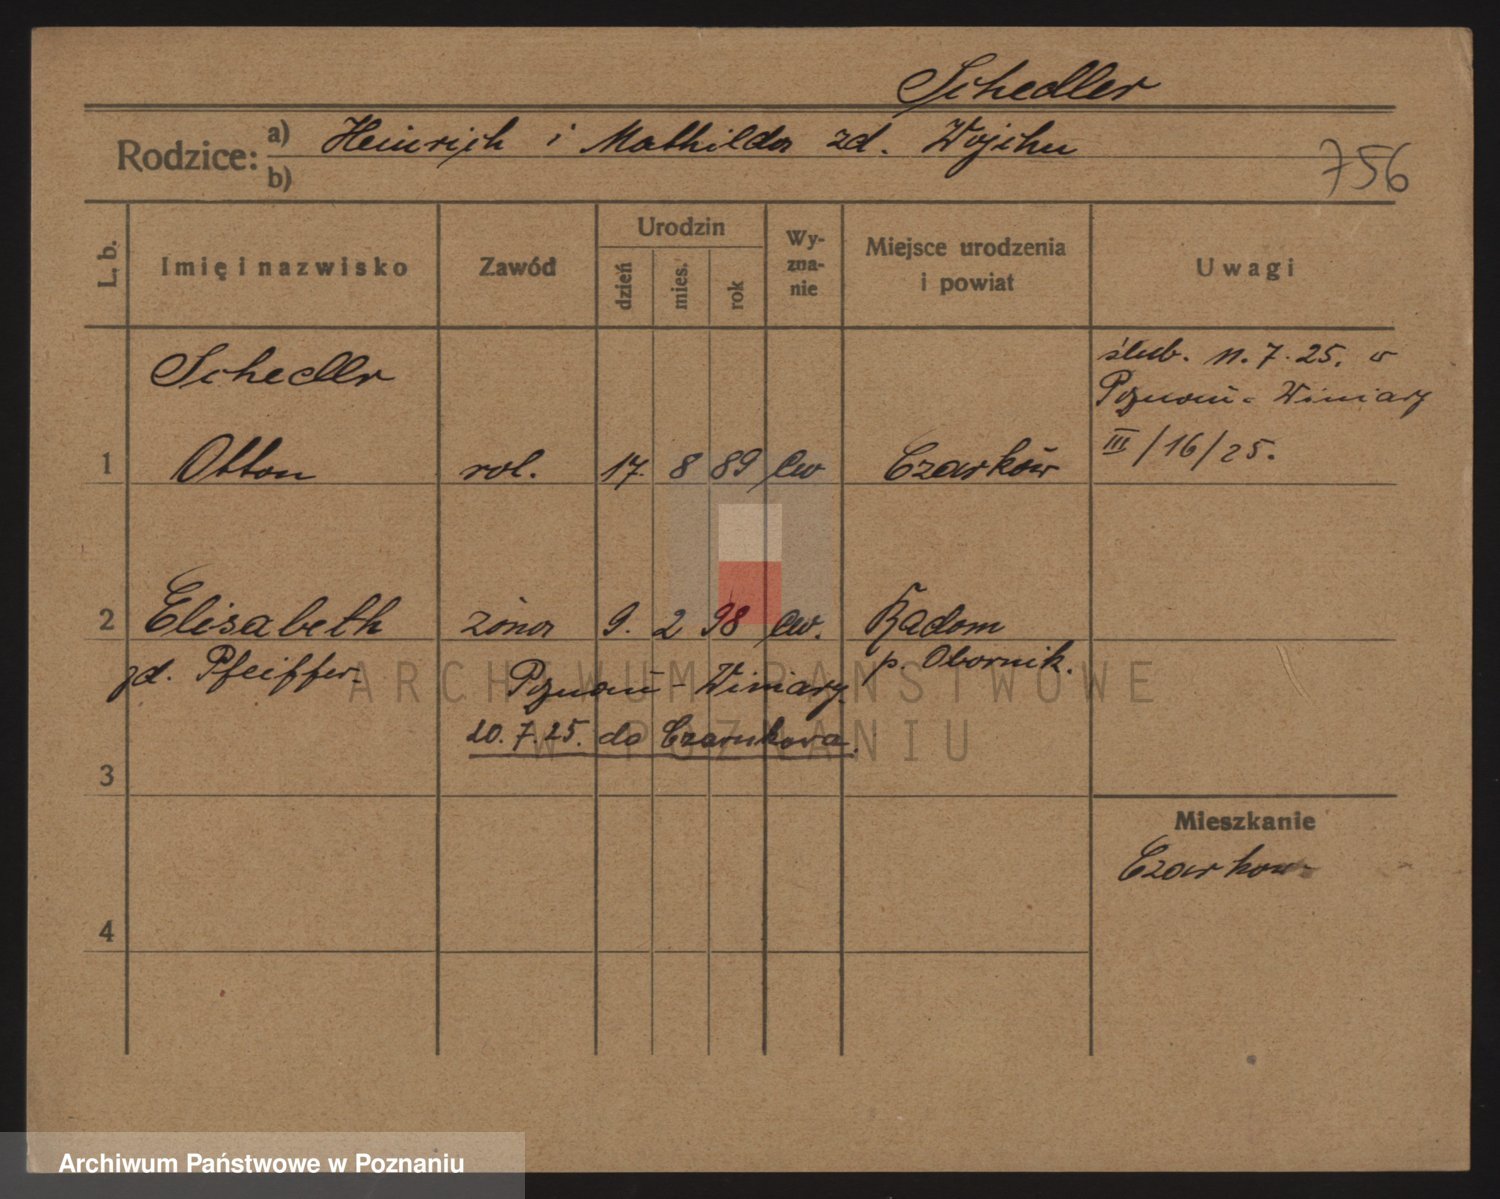 Schedler
Rodzice: a) Heinrich i Mathilda zd. Wojchu
b)
756
L. b. Imię i nazwisko Zawód Urodzin dzień mies. rok Wy-zna-nie Miejsce urodzenia i powiat Uwagi
Schedler
ślub. 11. 7. 25. w
Poznań - Winiary
III/16/25.
1 Otton rol. 17. 8 89 ew Czarków
2 Elisabeth żona 9. 2 98 ew. Radom
zd. Pfeiffer. p. Obornik.
Poznań - Winiary.
20. 7. 25. do Czarnkowa.
3
Mieszkanie
Czarkow
4
ARCHIWUM PAŃSTWOWE
W POZNANIU
Archiwum Państwowe w Poznaniu